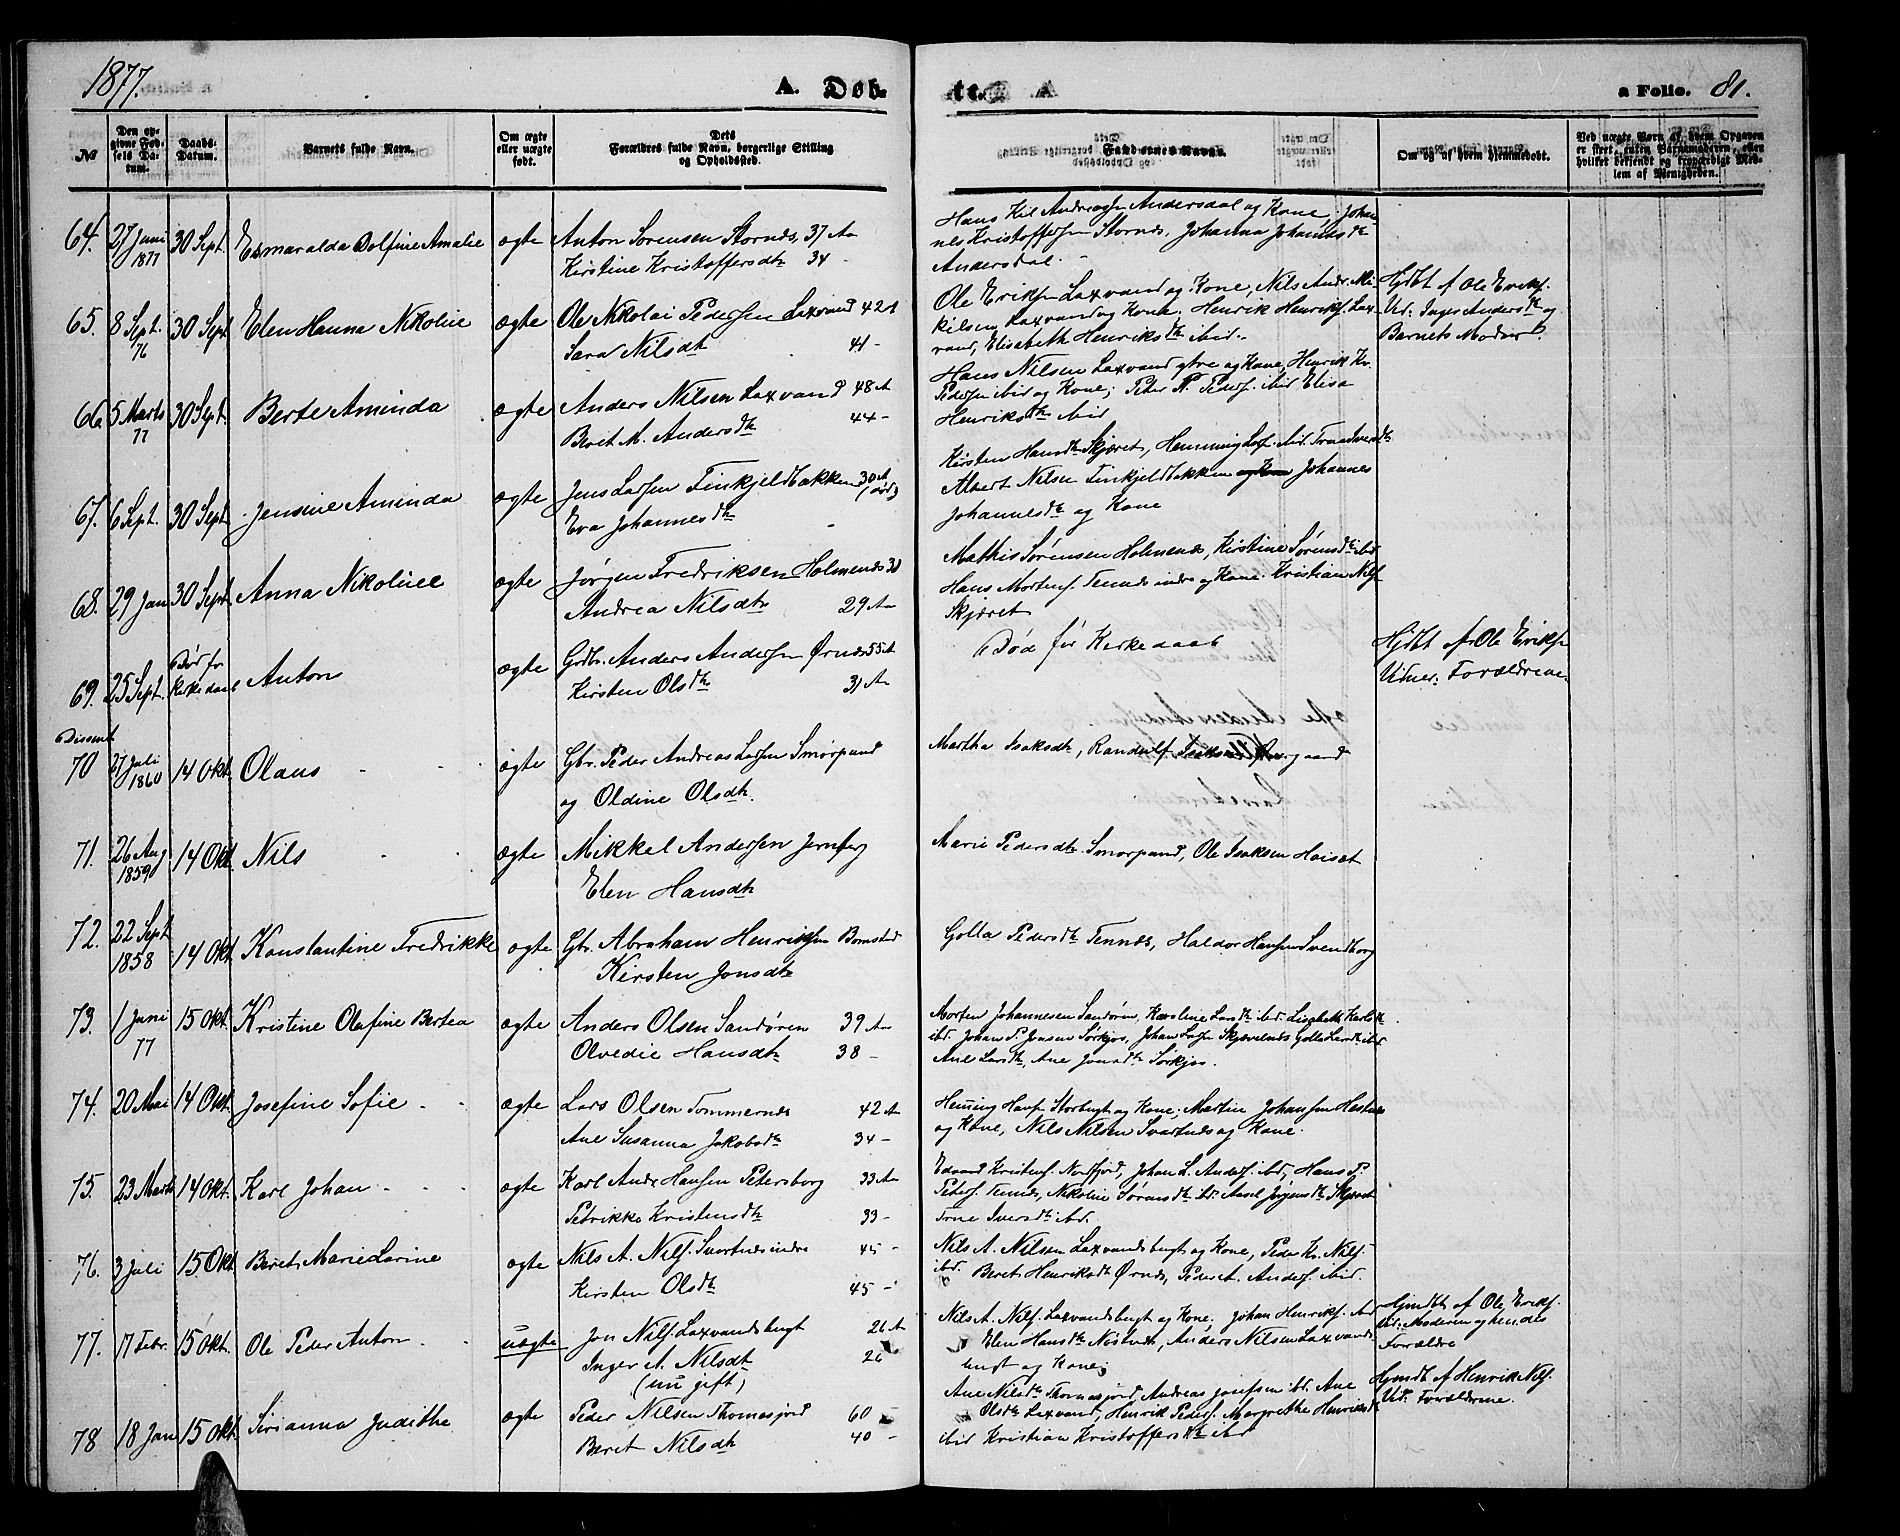 1877.
A. Døb-
te. A
a Folio. 81.
№
Den op-
givne Fød-
sels Da-
tum.
Daabs-
Datum.
Barnets fulde Navn.
Om ægte
eller uægte
født.
Dets
Forældres fulde Navn, borgerlige Stilling
og Opholdssted.
Faddernes Navne.
Om og af hvem hjemmedøbt.
Ved uægte Børn af hvem Opgaven
er skeet, enten Barnemoderen, eller
hvilket bekjendt og troværdigt Med-
lem af Menigheden.
64. 27 Juni 1877 30 Sept. Esmaralda Dolfine Amalie ægte Anton Sørensen Stornes, 37 Aa
Kirstine Kristoffersdtr 34 -
Hans Kil Andreasen Andersdal og Kone, Johan-
nes Kristoffersen Stornes, Johanna Johannesdtr
Andersdal.
65. 8 Sept. 76 30 Sept Elen Hanna Nikoline ægte Ole Nikolai Pedersen Laxvand 42 A
Sara Nilsdtr 41 -
Ole Eriksen Laxvand og Kone, Nils Andr. Mi-
kilsen Laxvand og Kone, Henrik Henriks. Lax-
vand, Elisabeth Henriksdtr ibid.
Hjdbt af Ole Eriks.
Vid: Inger Andersdtr og
Barnets Moder
66 5 Marts 77 30 Sept. Berte Aminda ægte Anders Nilsen Laxvand 48 A
Beret M. Andersdtr 44 -
Hans Nilsen Laxvand øvre og Kone, Henrik Kr.
Pedersen ibid og Kone; Peter N. Peders. ibid Elisa
Henriksdtr ibid
67. 6 Sept. 30 Sept. Jensine Aminda ægte Jens Larsen Finkjeldbakken 30 A
(død)
Eva Johannesdtr -
Kirsten Hansdtr Skjæret, Hemming Lars. ibid.
Albert Nilsen Finkjeldbakken og Kone Johannes
Johannesdtr og Kone
68. 29 Jan 30 Sept. Anna Nikoline ægte Jørgen Fredriksen Holmenes 30
Andrea Nilsdtr 29 Aa
Mathis Sørensen Holmenes, Kirstine Sørensdtr ibid
Hans Mortens. Tennes indre og Kone. Kristian Nils.
Skjæret
69. 25 Sept. Død før
Kirkedaab Anton ægte Grdbr. Anders Andersen Ørnes 55 A
Kirsten Olsdtr 31 Aa
Død før Kirkedaab
Hjdbt af Ole Eriksen
Vidner: Forældrene.
Dissent
70 27 Juli 1860 14 Okt. Olaus ægte Gbr. Peder Andreas Larsen Smørpund
og Oldine Olsdtr.
Martha Isaksdtr, Randulf Isaksen
71. 26 Aug 1859 14 Okt Nils ægte Mikkel Andersen Jernberg
Elen Hansdtr
Marie Pedersdtr Smørpund, Ole Isaksen Haiset
72. 22 Sept 1858 14 Okt. Konstantine Fredrikke ægte Gbr. Abraham Henriksen Bomstad
Kirsten Jonsdtr
Golla Pedersdtr Tennes, Haldor Hansen Svendborg
73. 1 Juni 77 15 Okt. Kristine Olufine Bertea ægte Anders Olsen Sandøren 39 Aa
Olvedie Hansdtr 38 -
Morten Johannesen Sandøren, Karoline Larsdtr ibd. Lisabeth Karlsdtr
ibd. Johan P. Jensen Sørkjos, Johan Larsen Skjævelnes Golla Larsdtr ibd
Ane Larsdtr, Ane Jonsdtr Sørkjos.
74. 20 Mai 14 Okt. Josefine Sofie ægte Lars Olsen Tømmernes 42 A
Ane Susanna Jakobsdtr 34 -
Heming Hans. Storbugt og Kone, Martin Johansen Hestnes
og Kone, Nils Nilsen Svartnes og Kone.
75. 23 Marts 14 Okt. Karl Johan ægte Karl Andr. Hansen Petersborg 33 Aa
Petrikke Kristensdtr 33 -
Edvard Kristens. Nordfjord, Johan L. Anders. ibd, Hans P.
Peders. Tennes, Nikoline Sørensdtr ib. Aasel Jørgensdtr Skjæret
Trine Iversdtr ibd.
76. 3 Juli 15 Okt. Beret Marie Larine ægte Nils A. Nils. Svartnes indre 45 -
Kirsten Olsdtr 45 -
Nils A. Nilsen Laxvandsbugt og Kone, Peder Kr. Nils.
ibd. Beret Henriksdtr Ørnes, Peder A. Anders. ibid.
77. 17 Febr. 15 Okt. Ole Peder Anton uægte Jon Nils. Laxvandsbugt 26 A
Inger A. Nilsdtr 26
(nu gift)
Nils A. Nils. Laxvandsbugt og Kone. Johan Henriks. ibd
Elen Hansdtr Nestnes, Anders Nilsen Laxvands-
bugt og Kone
Hjmdbt af Ole Eriks.
Vid: Moderen og hendes
Forældre
78 18 Jan 15 Okt Sirianna Judithe ægte Peder Nilsen Thomasjord 60 -
Beret Nilsdtr 40 -
Ane Nilsdtr Thomasjord, Andreas Josefsen ibd. Ane
Olsdtr Laxvand, Henrik Peders. Margrethe Henriksdtr
ibid Kristian Kristoffersdtr ibid
Hjmdbt af Henrik Nils.
Vid: Forældrene.